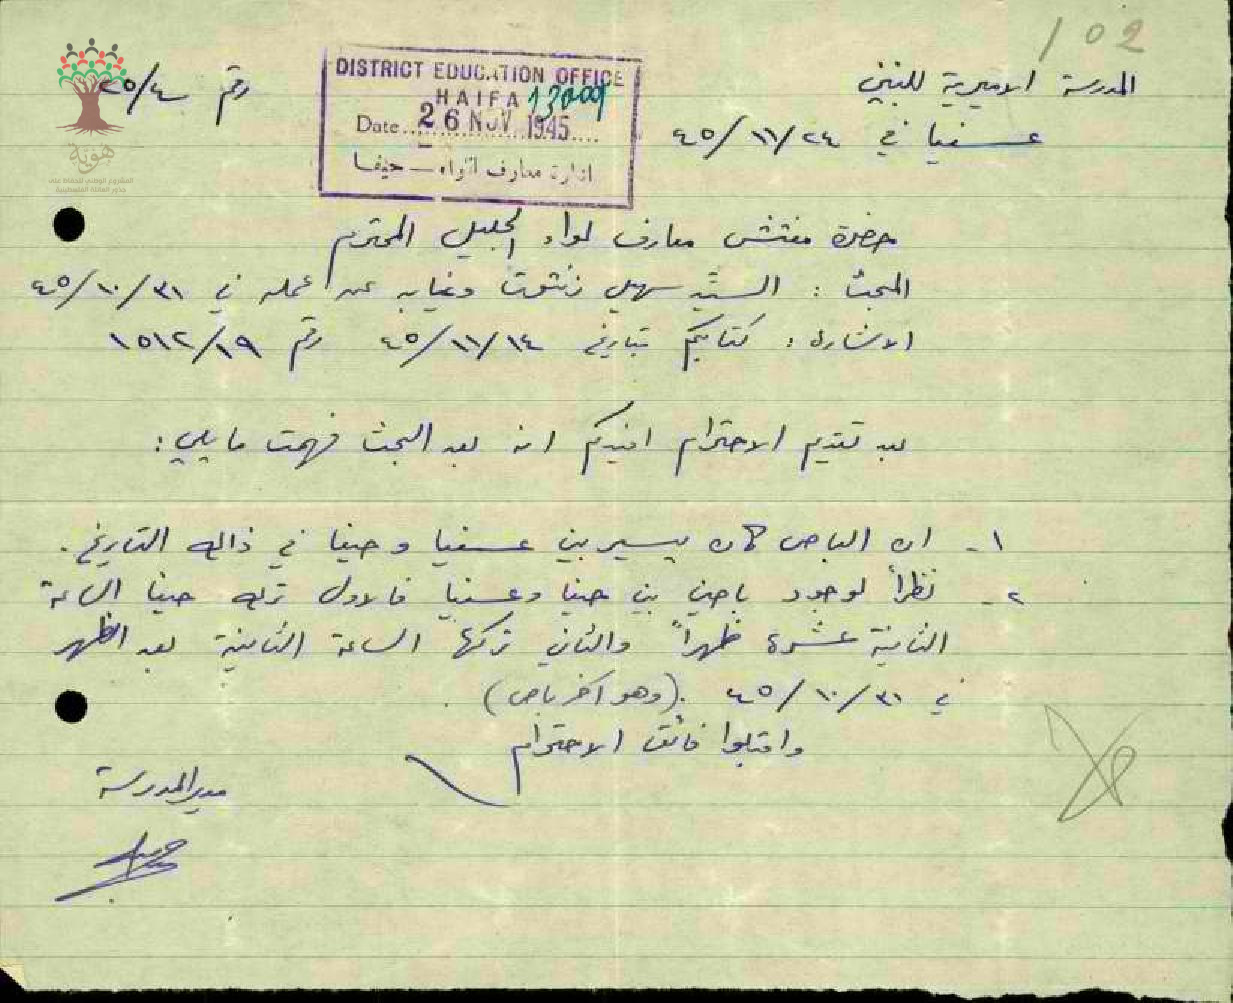 102
المدرسة الاميرية للبنين
عسفيا في ٢٤/١١/٤٥
رقم ٢٥/٤
DISTRICT EDUCATION OFFICE
HAIFA 13009
Date 26 NOV 1945
ادارة معارف اللواء — حيفا
هوية
المشروع الوطني للحفاظ على
جذور العائلة الفلسطينية
حضرة مفتش معارف لواء الجليل المحترم
المبحث : السيد سهيل زنتوت وغيابه عن عمله في ٣١/١٠/٤٥
الاشارة : كتابكم بتاريخ ١٤/١١/٤٥ رقم ١٥١٢/١٩
بعد تقديم الاحترام افيدكم انه بعد البحث فهمت ما يلي :
١- ان الباص كان يسير بين عسفيا وحيفا في ذاك التاريخ .
٢- نظراً لوجود باصين بين حيفا وعسفيا فالاول ترك حيفا الساعة
الثانية عشرة ظهراً والثاني تركها الساعة الثانية بعد الظهر
في ٣١/١٠/٤٥ . (وهو آخر باص) .
واقبلوا فائق الاحترام
مدير المدرسة